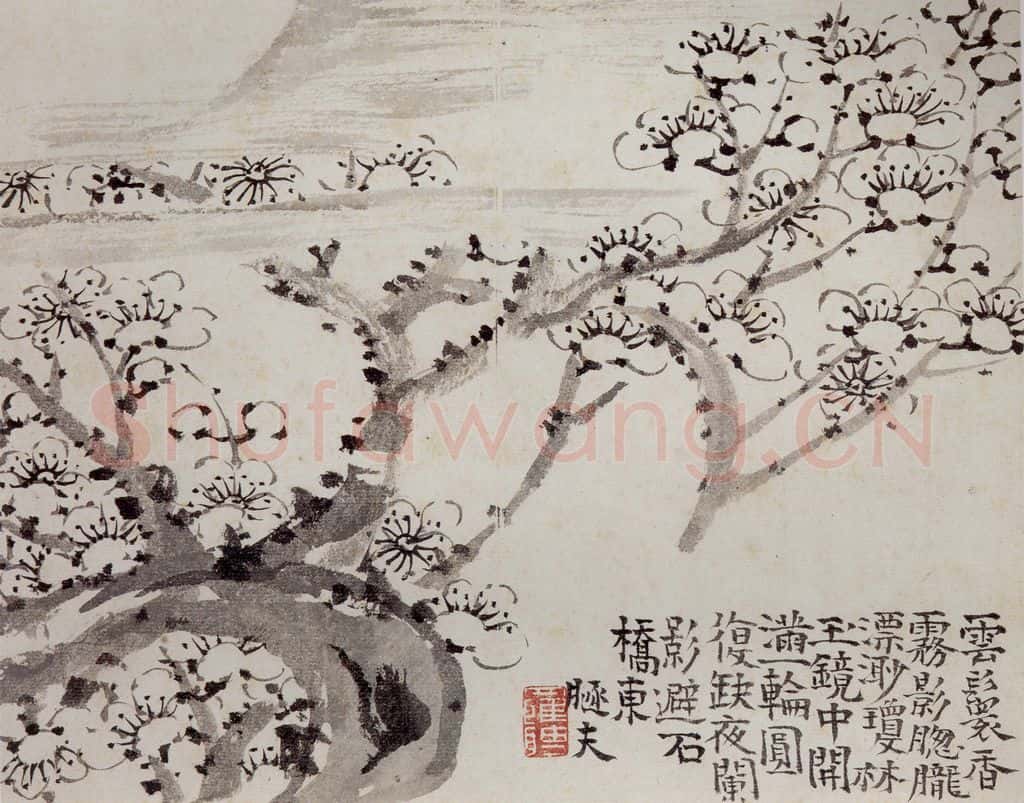 雲鬟香
霧影朦朧
漂渺瓊林
玉鏡中開
滿一輪圓
復缺夜闌
影避石
橋東
夫
Shufawang.CN